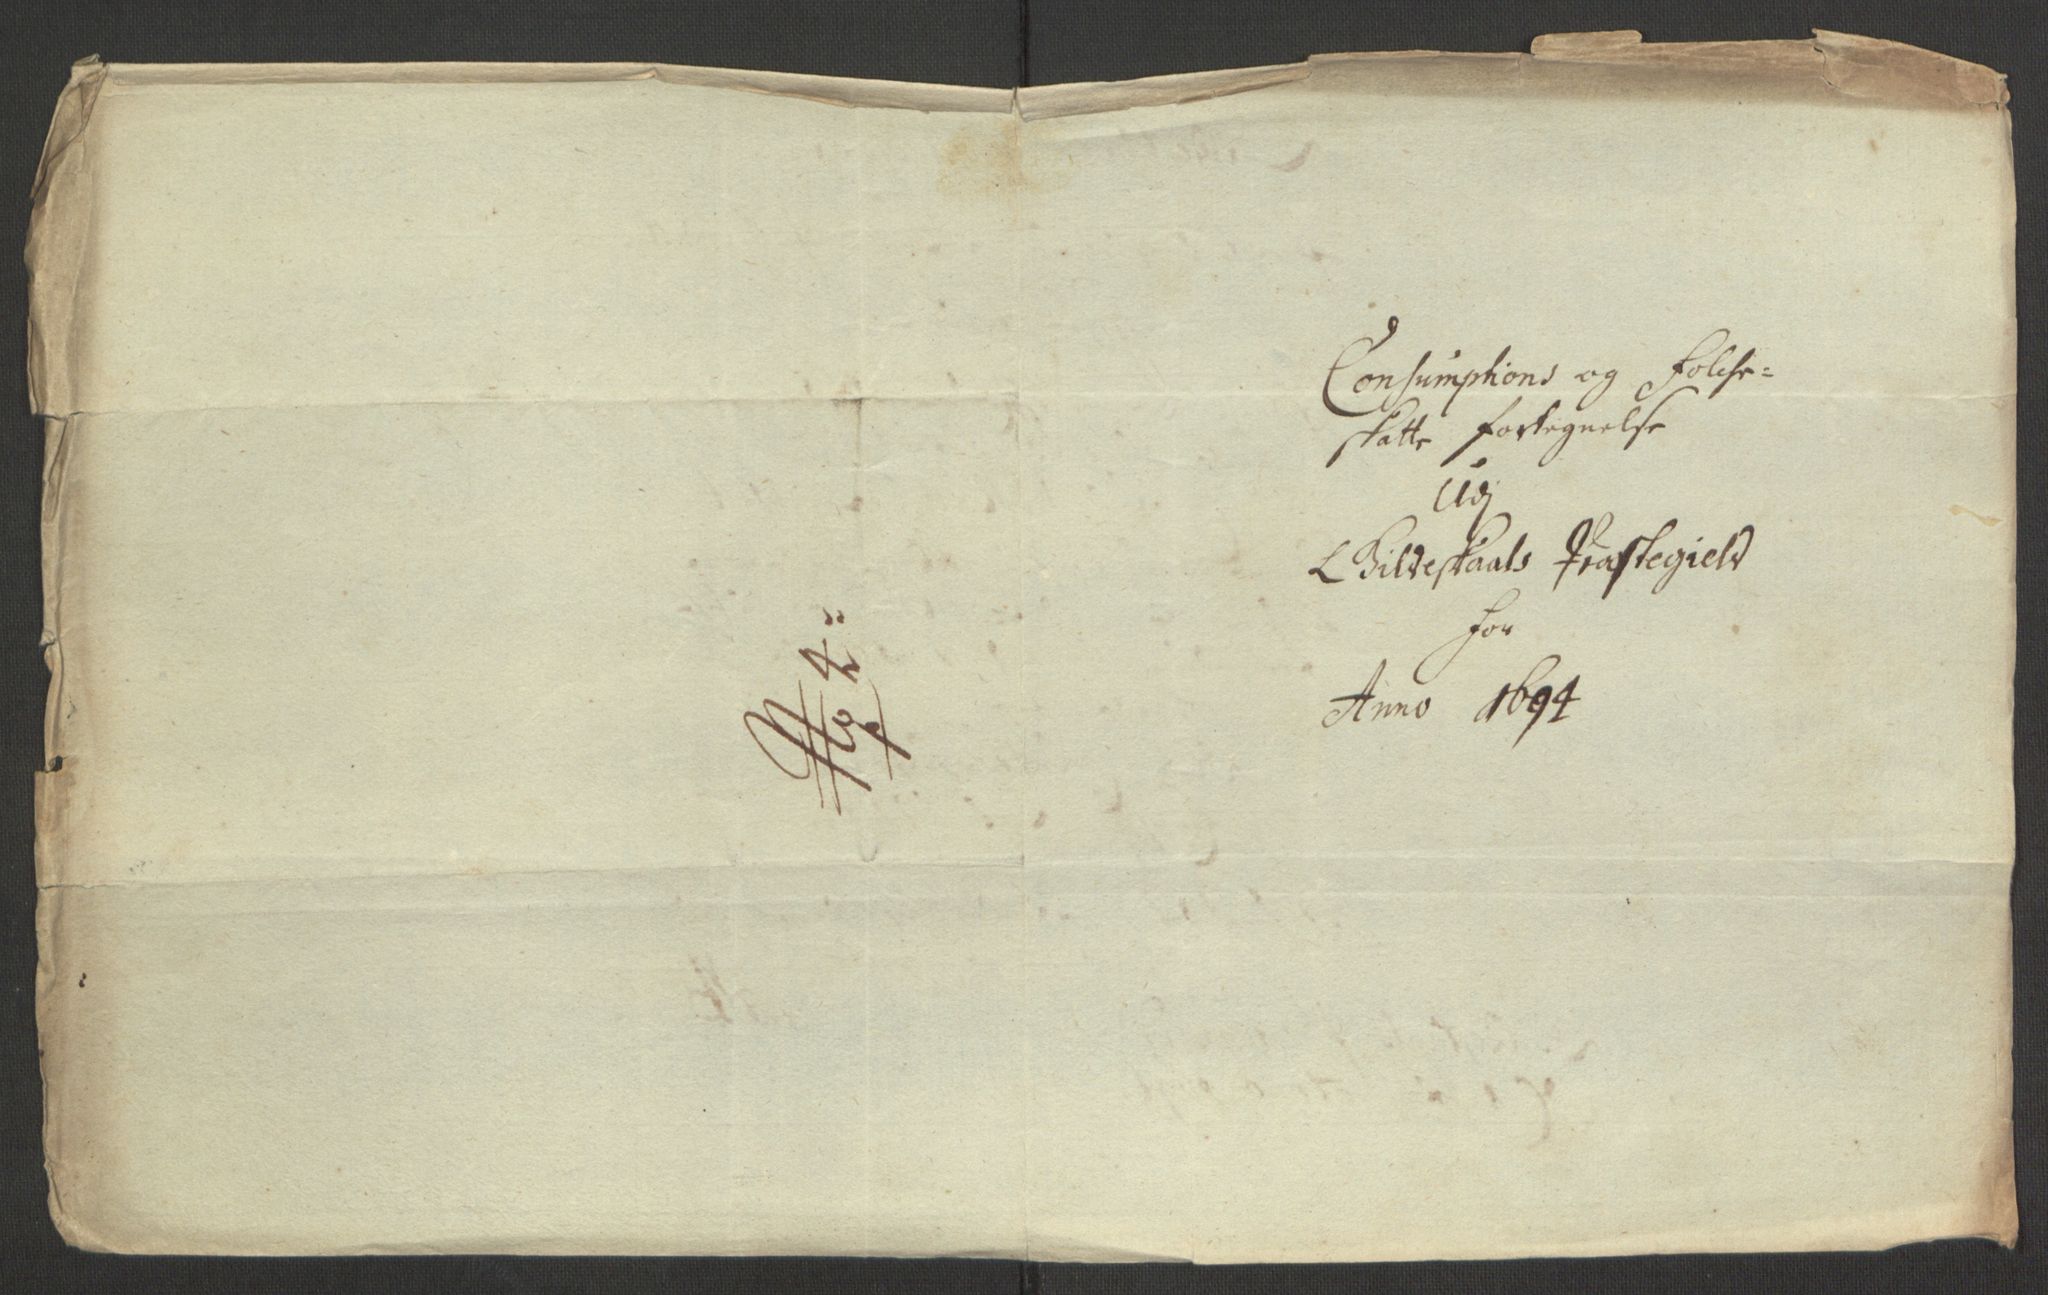 Consumptions og Folche=
skatte fortegnelse
Udj
Bildeskaals Præstegield
for
Anno 1694
No 4